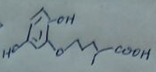 OH
HO
O
COOH